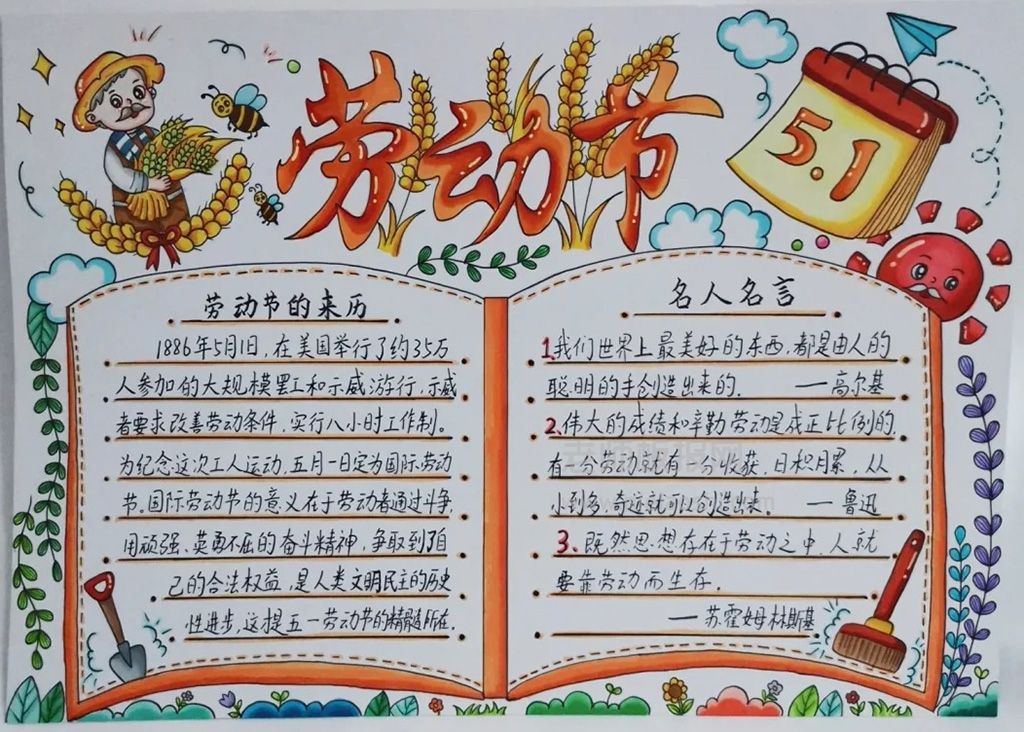 劳动节
5.1
劳动节的来历
1886年5月1日，在美国举行了约35万
人参加的大规模罢工和示威游行，示威
者要求改善劳动条件，实行八小时工作制。
为纪念这次工人运动，五月一日定为国际劳动
节。国际劳动节的意义在于劳动者通过斗争，
用顽强、英勇不屈的奋斗精神，争取到了自
己的合法权益，是人类文明民主的历史
性进步，这提五一劳动节的精髓所在。
名人名言
1、我们世界上最美好的东西，都是由人的
聪明的手创造出来的。 ——高尔基
2、伟大的成绩和辛勤劳动是成正比例的，
有一分劳动就有一分收获，日积月累，从
小到多，奇迹就可以创造出来。 ——鲁迅
3、既然思想存在于劳动之中，人就
要靠劳动而生存。
——苏霍姆林斯基